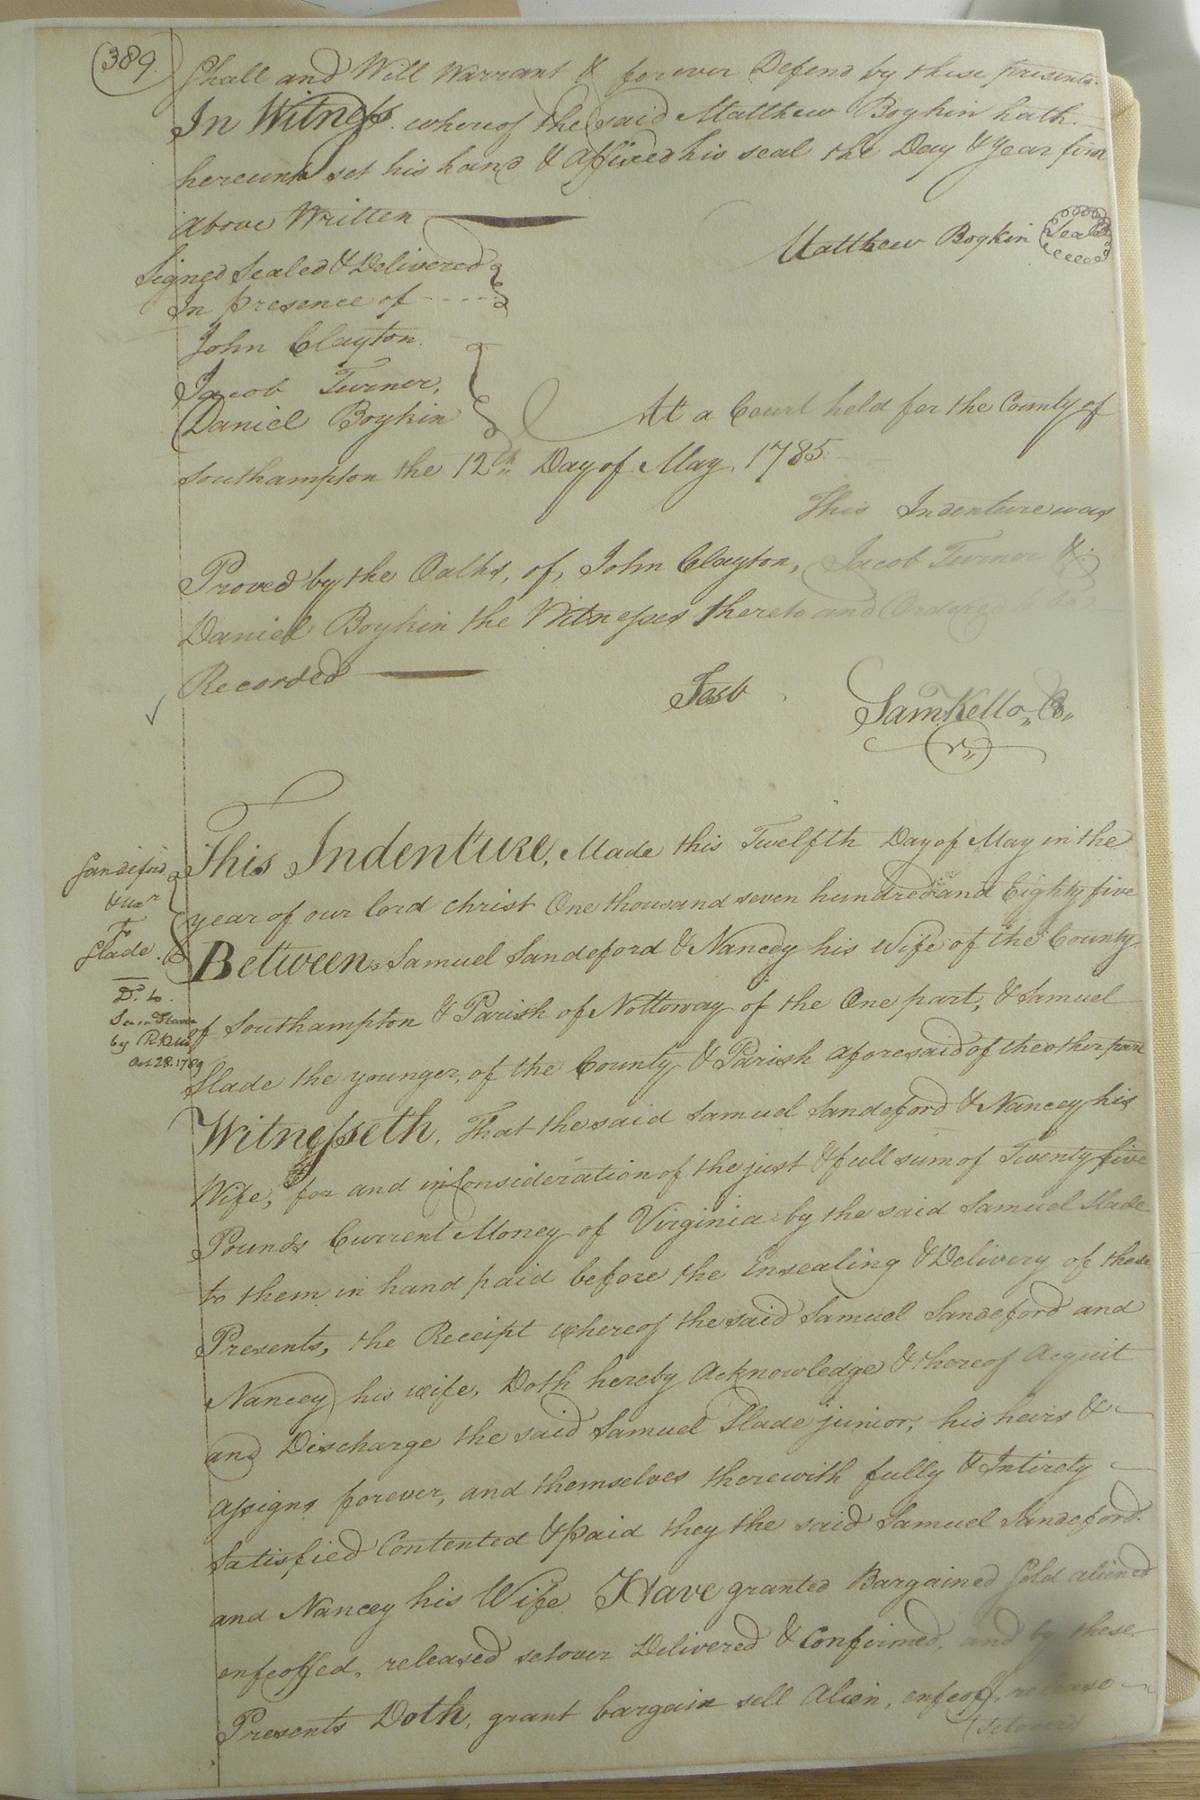 (389.)
Shall and Will Warrant & forever Defend by these presents.
In Witness whereof the said Matthew Boykin hath
hereunto set his hand & Affixed his seal the Day & Year first
Above Written
Matthew Boykin Seal
Signed Sealed & Delivered
In presence of
John Clayton.
Jacob Turner,
Daniel Boykin
At a Court held for the County of
Southampton the 12th Day of May, 1785.
This Indenture was
Proved by the Oaths, of, John Clayton, Jacob Turner &
Daniel Boykin the Witnesses thereto and Ordered
Recorded
Test
Sam. Kello,, C,,
Sandeford
& uxr
To
Slade.
D. to.
by
Oct 28. 1789
This Indenture, Made this Twelfth Day of May in the
year of our lord christ One thousand seven hundred and Eighty five
Between, Samuel Sandeford & Nancey his Wife of the County
of Southampton & Parish of Nottoway of the One part, & Samuel
Slade the younger, of the County & Parish aforesaid of the other part
Witnesseth, That the said Samuel Sandeford & Nancey his
Wife, for and in Consideration of the just & full sum of Twenty five
Pounds Current Money of Virginia by the said Samuel Slade
to them in hand paid before the Ensealing & Delivery of these
Presents, the Receipt whereof the said Samuel Sandeford and
Nancey his wife, Doth hereby Acknowledge & thereof Acquit
and Discharge the said Samuel Slade junior, his heirs &
assigns forever, and themselves therewith fully & Intirety
Satisfied Contented & paid they the said Samuel Sandeford.
and Nancey his Wife Have granted Bargained Sold aliened
enfeoffed, released setover Delivered & Confirmed, and by these
Presents Doth, grant bargain sell Alien, enfeoff, release
(setover